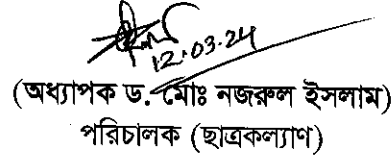 12.03.24
(অধ্যাপক ড. মোঃ নজরুল ইসলাম)
পরিচালক (ছাত্রকল্যাণ)